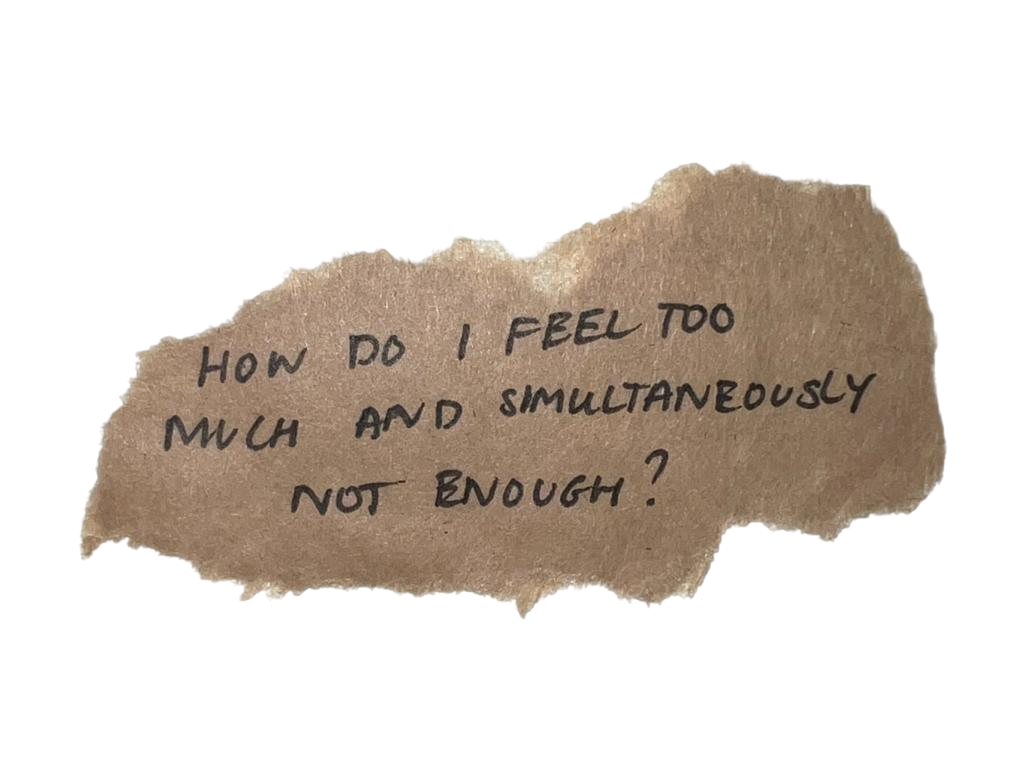 HOW DO I FEEL TOO
MUCH AND SIMULTANEOUSLY
NOT ENOUGH?